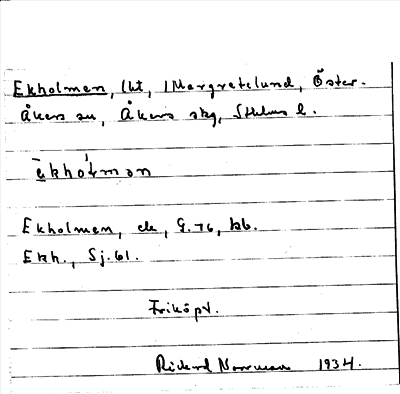 Ekholmen, lht, Margretelund, Öster-
Åkers sn, Åkers skg, Sthlms l.
ekholmən
Ekholmen, do, G. 76, bb.
Ekh., Sj. 61.
Friköpt.
Rickard Norrman 1934.